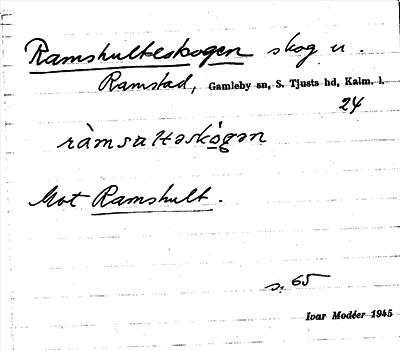 Ramshulteskogen skog u.
Ramstad, Gamleby sn, S. Tjusts hd, Kalm. l.
24
ràmsɑltəskògən
Mot Ramshult.
s. 65
Ivar Modéer 1945